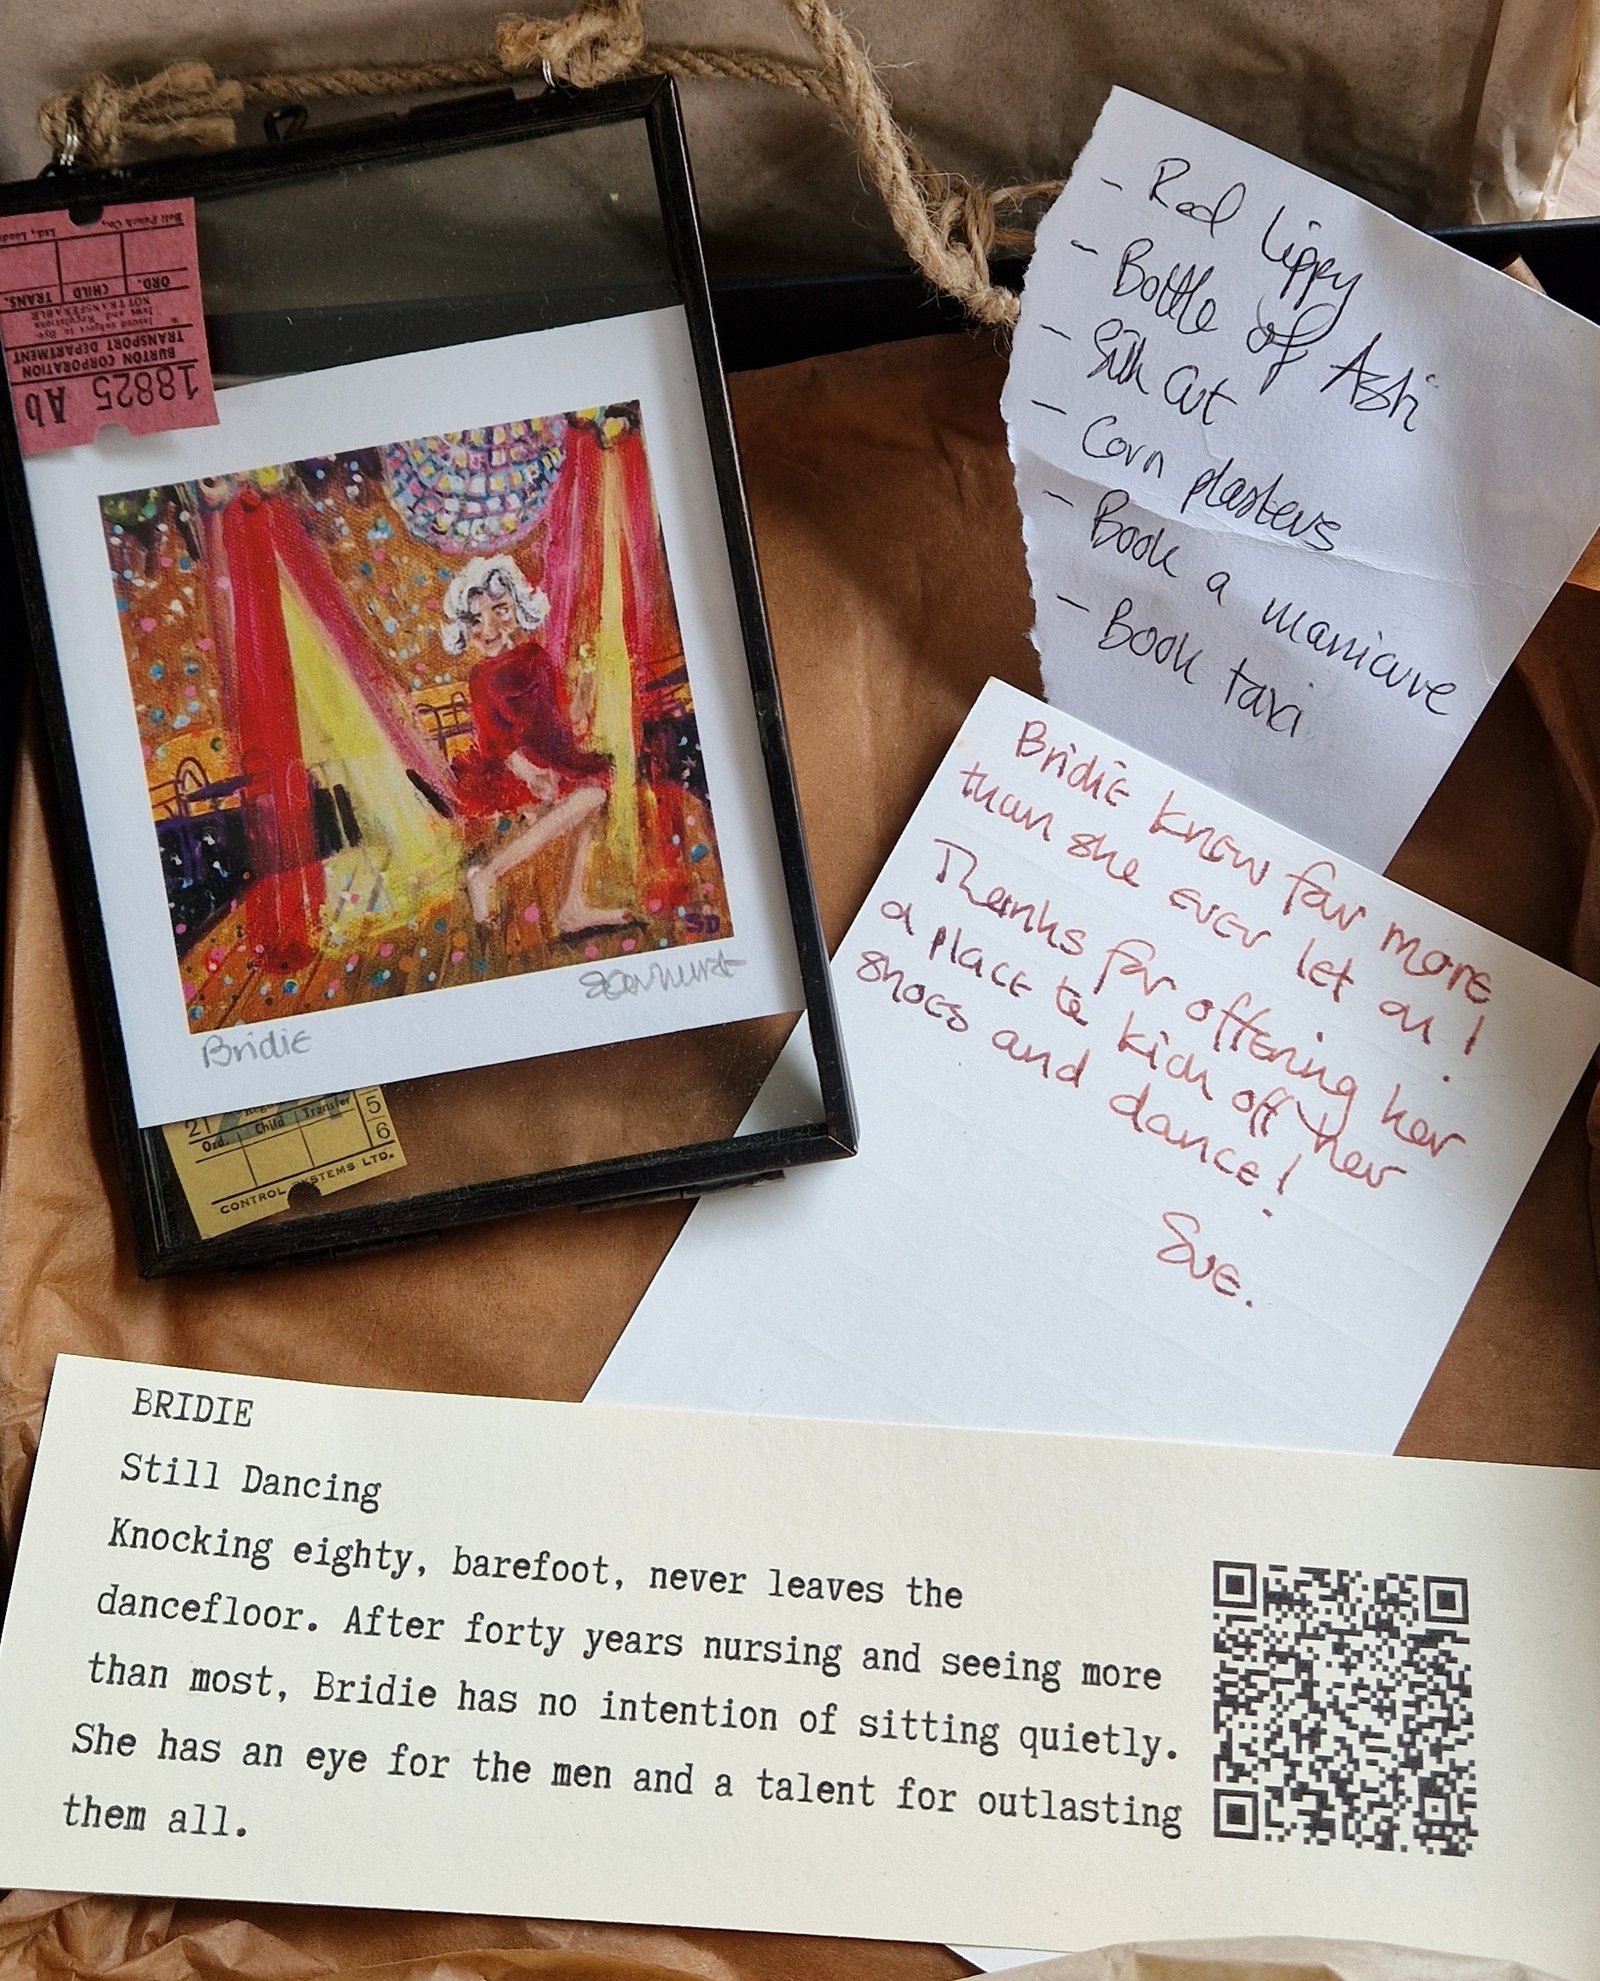 Bell Punch Co.,
Ltd., Londo
ORD. CHILD TRANS.
NOT TRANSFERABLE
Issued subject to Bye-
laws and Regulations
BURTON CORPORATION
TRANSPORT DEPARTMENT
Ab 18825
SD
Bridie
21
Ord. Child Transfer
5
6
CONTROL SYSTEMS LTD.
- Red Lippy
- Bottle of Asti
- Silk Cut
- Corn plasters
- Book a manicure
- Book taxi
Bridie knew far more
than she ever let on!
Thanks for offering her
a place to kick off her
shoes and dance!
Sue.
BRIDIE
Still Dancing
Knocking eighty, barefoot, never leaves the
dancefloor. After forty years nursing and seeing more
than most, Bridie has no intention of sitting quietly.
She has an eye for the men and a talent for outlasting
them all.